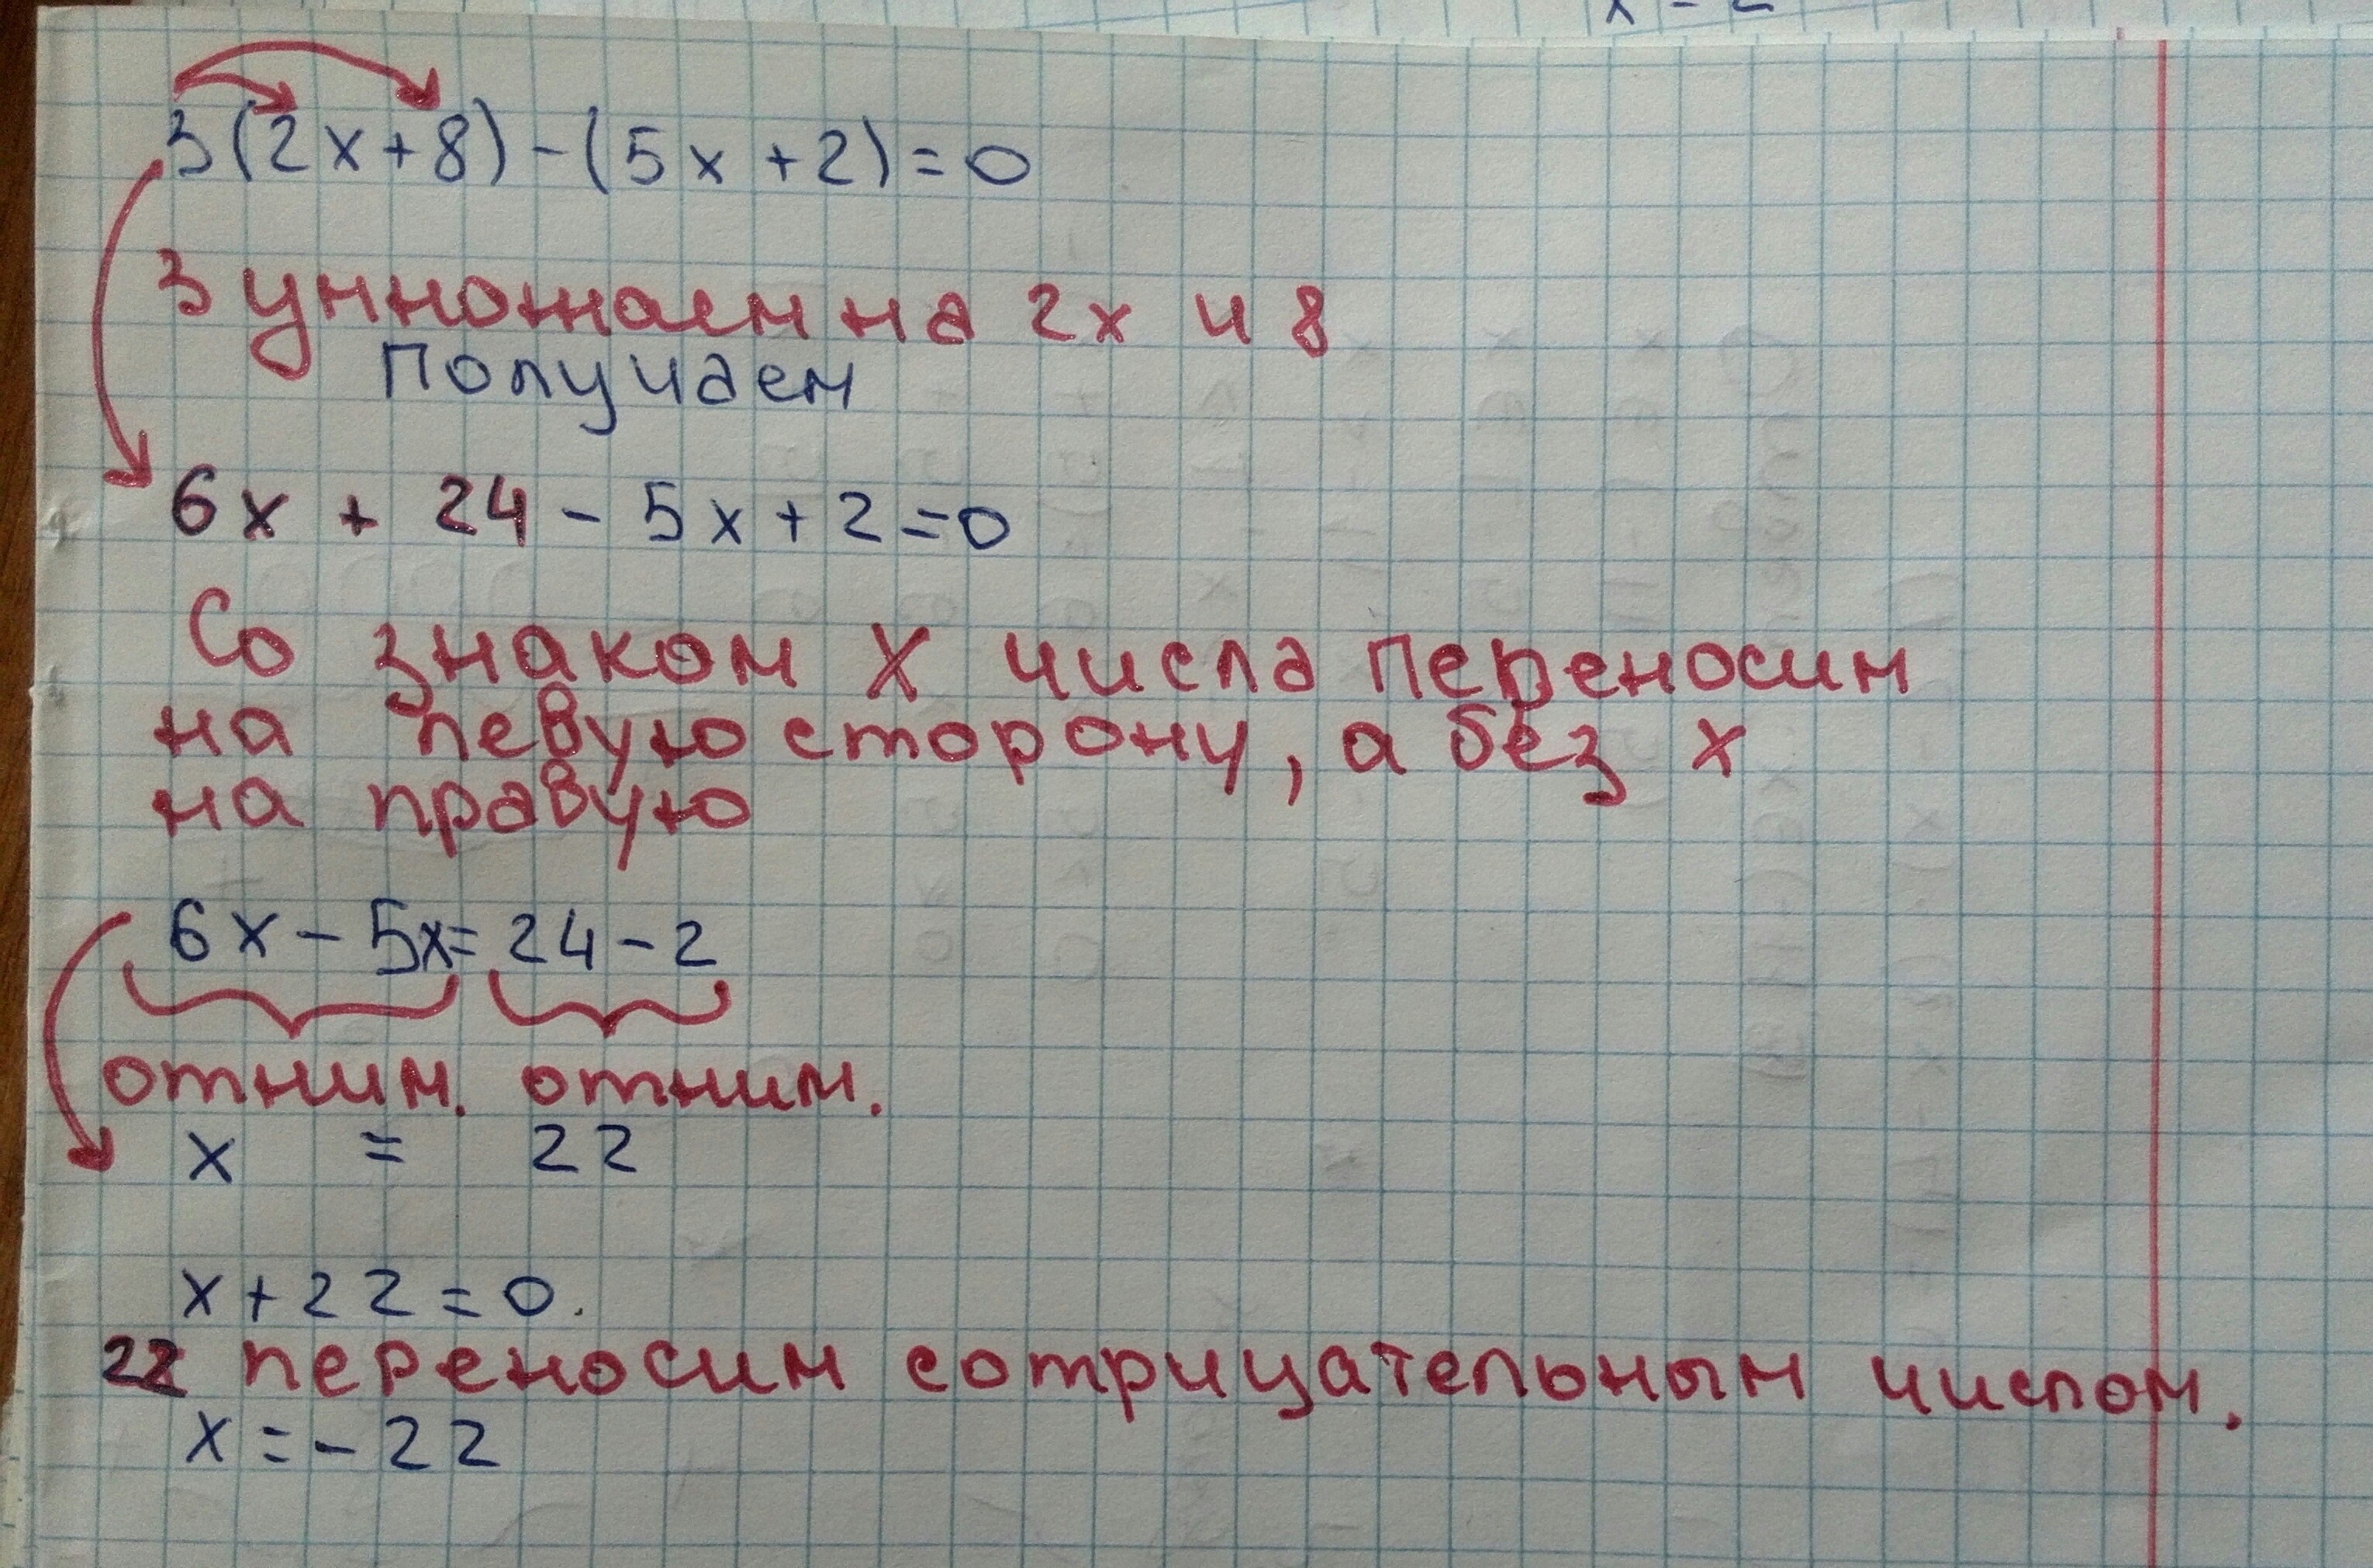 3(2x+8)-(5x+2)=0
3 умножаем на 2x и 8
Получаем
6x + 24 - 5x + 2 = 0
Со знаком X числа переносим
на левую сторону, а без x
на правую
6x - 5x = 24 - 2
отним. отним.
x = 22
x + 22 = 0.
22 переносим с отрицательным числом.
x = -22